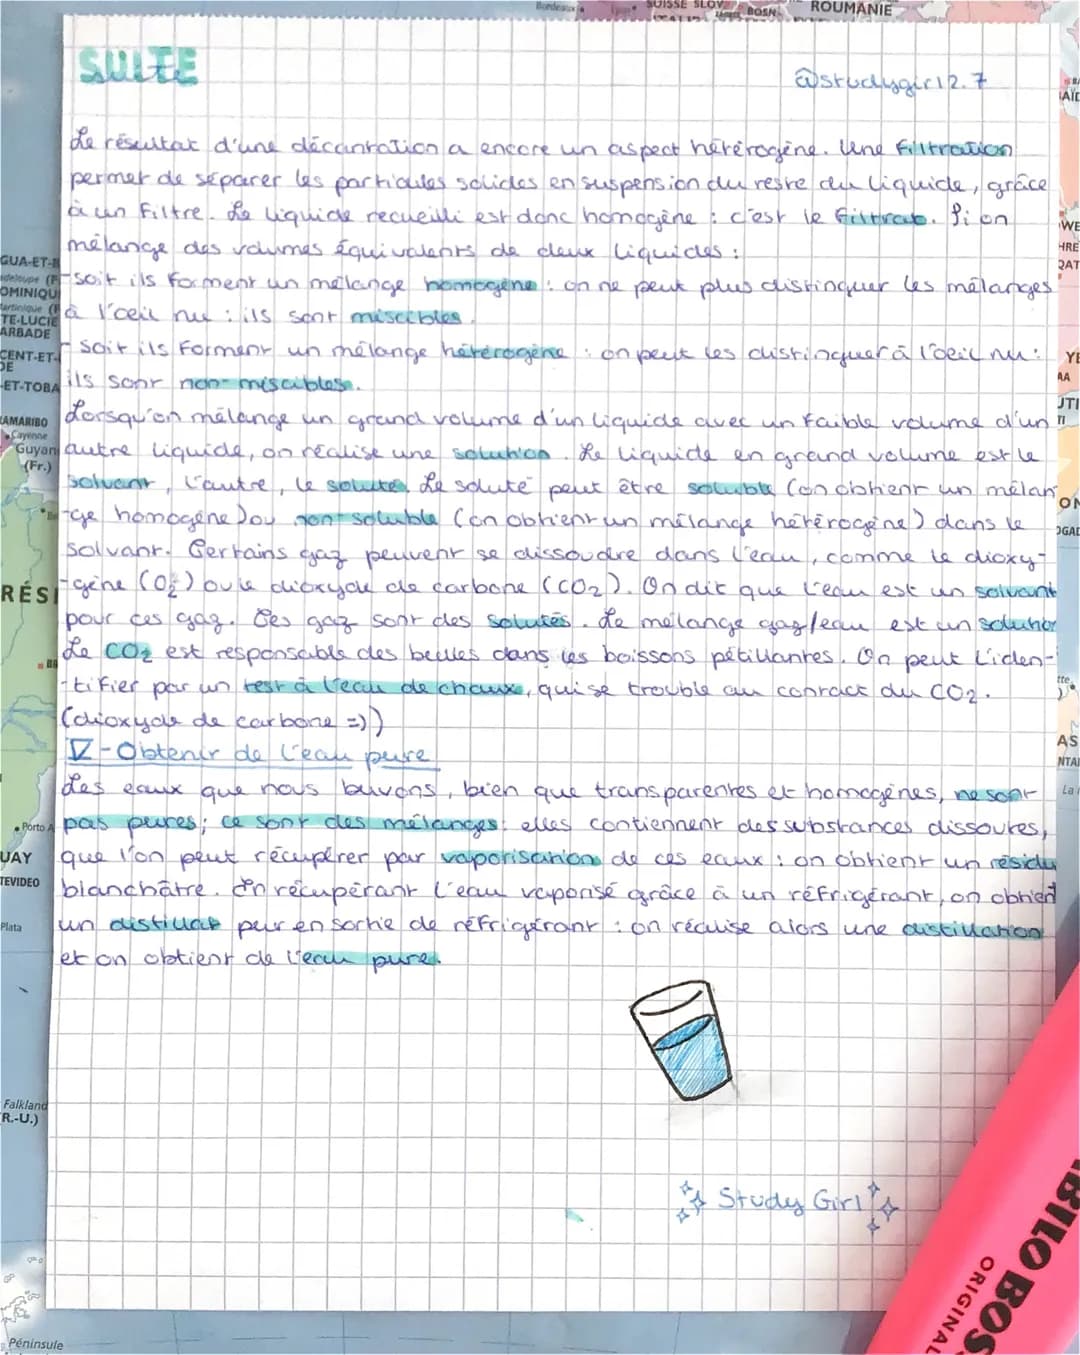 Bordeaux
Lyon
SUISSE SLOV
ZAGREB BOSN
ROUMANIE
SUITE
@studygirl2.7
Le résultat d'une décantation a encore un aspect hétérogène. Une filtration
permet de séparer les particules solides en suspension du reste du liquide, grâce
à un filtre. Le liquide recueilli est donc homogène : c'est le filtrat. Si on
mélange des volumes équivalents de deux liquides :
-soit ils forment un mélange homogène : on ne peut plus distinguer les mélanges
à l'oeil nu : ils sont miscibles.
- soit ils forment un mélange hétérogène : on peut les distinguer à l'oeil nu :
ils sont non-miscibles.
Lorsqu'on mélange un grand volume d'un liquide avec un faible volume d'un
autre liquide, on réalise une solution. Le liquide en grand volume est le
solvant, l'autre, le soluté. Le soluté peut être soluble (on obtient un mélan-
-ge homogène) ou non-soluble (on obtient un mélange hétérogène) dans le
solvant. Certains gaz peuvent se dissoudre dans l'eau, comme le dioxy-
-gène (O2) ou le dioxyde de carbone (CO2). On dit que l'eau est un solvant
pour ces gaz. Ces gaz sont des solutés. Le mélange gaz/eau est un solution
Le CO2 est responsable des bulles dans les boissons pétillantes. On peut l'iden-
-tifier par un test à l'eau de chaux, qui se trouble au contact du CO2.
(dioxyde de carbone =))
V-Obtenir de l'eau pure
Les eaux que nous buvons, bien que transparentes et homogènes, ne sont
pas pures; ce sont des mélanges: elles contiennent des substances dissoutes,
que l'on peut récupérer par vaporisation de ces eaux : on obtient un résidu
blanchâtre. En récupérant l'eau vaporisé grâce à un réfrigérant, on obtient
un distillat pur en sortie de réfrigérant : on réalise alors une distillation
et on obtient de l'eau pure.
Study Girl
GUA-ET-B
OMINIQU
TE-LUCIE
ARBADE
CENT-ET-
DE
-ET-TOBA
AMARIBO
Cayenne
Guyan
(Fr.)
RÉSI
Porto A
UAY
TEVIDEO
Plata
Falkland
R.-U.)
Péninsule
STABILO BOSS
ORIGINAL